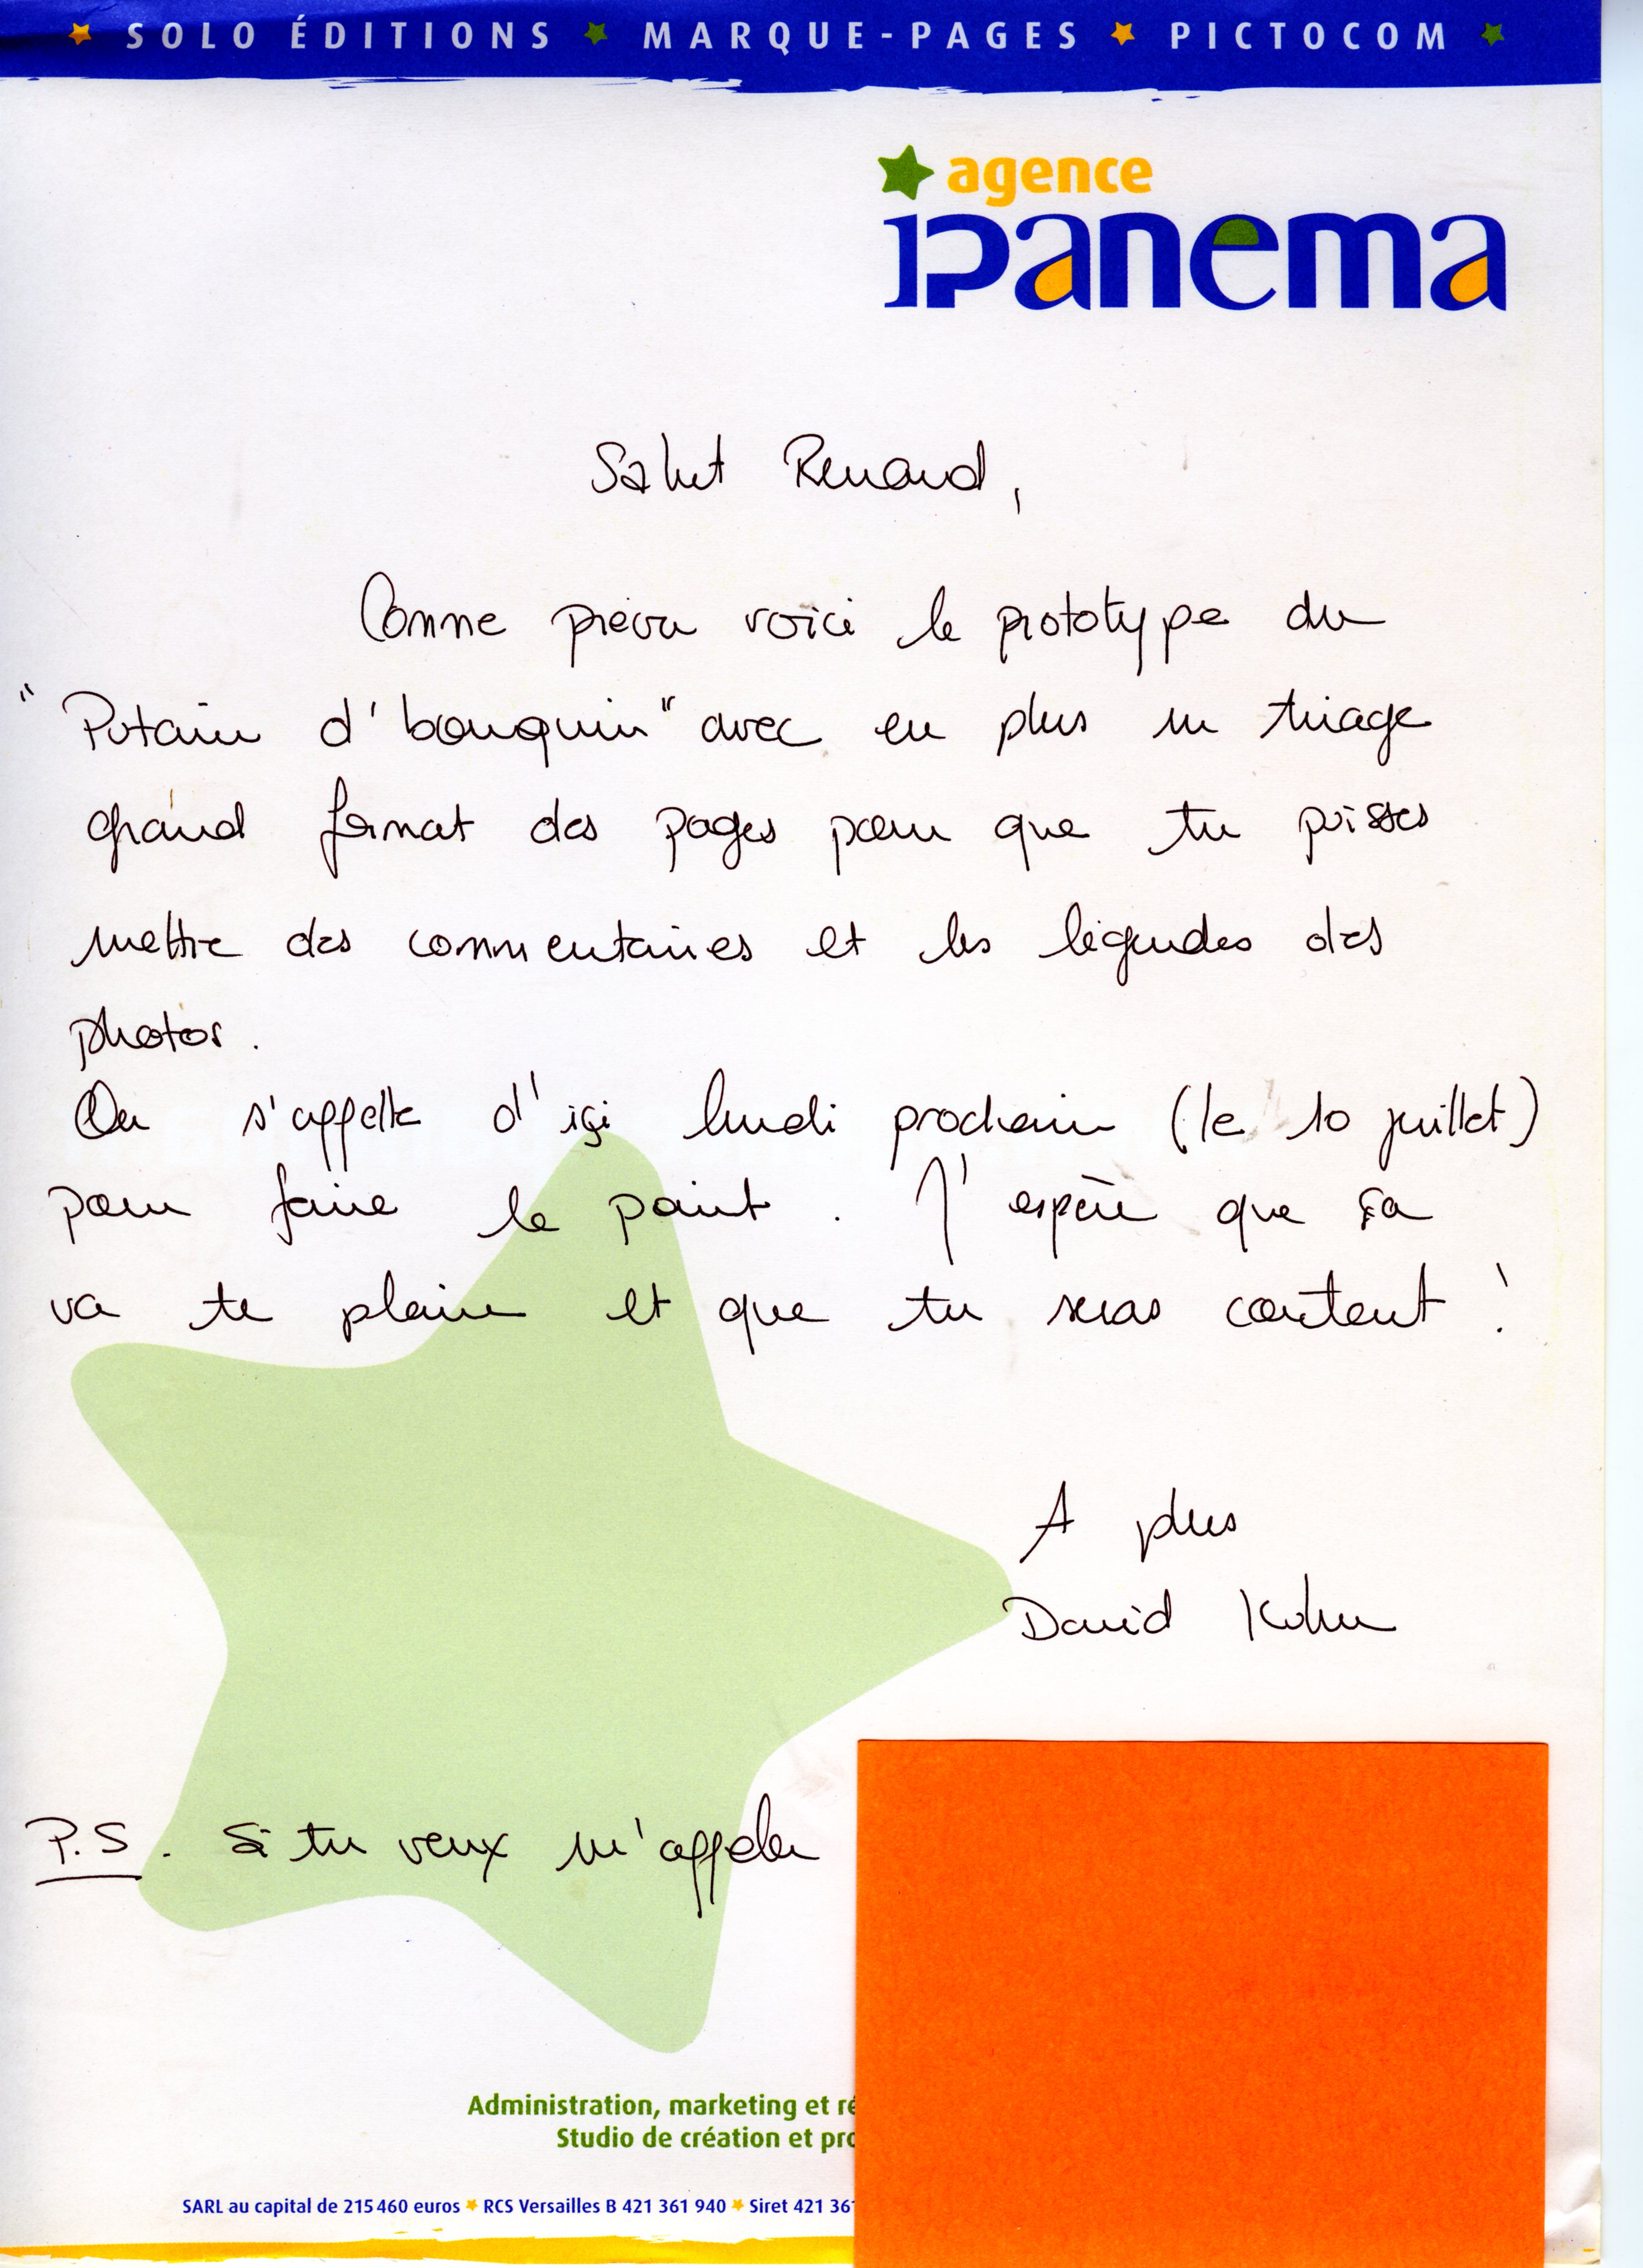 SOLO ÉDITIONS MARQUE-PAGES PICTOCOM
agence
ipanema
Salut Renaud,
Comme prévu voici le prototype du
"Putain d'bouquin" avec en plus un tirage
grand format des pages pour que tu puisses
mettre des commentaires et les légendes des
photos.
On s'appelle d'ici lundi prochain (le 10 juillet)
pour faire le point. J'espère que ça
va te plaire et que tu seras content !
A plus
David Kohn
P.S. Si tu veux m'appeler
Administration, marketing et ré
Studio de création et pro
SARL au capital de 215 460 euros RCS Versailles B 421 361 940 Siret 421 361